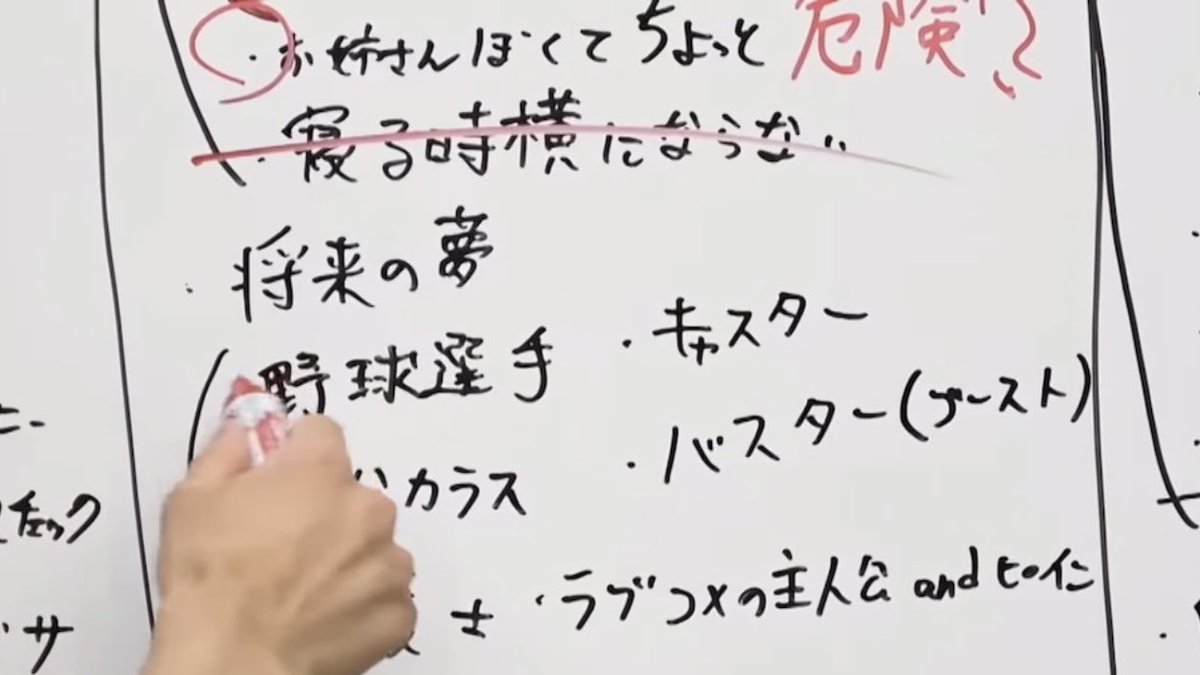 ・お姉さんぽくてちょっと 危険?
・寝る時横にならない
・将来の夢
野球選手
カラス
士
・キャスター
・バスター(ブースト)
・ラブコメの主人公 and ヒロイン
ニー
チェック
サ